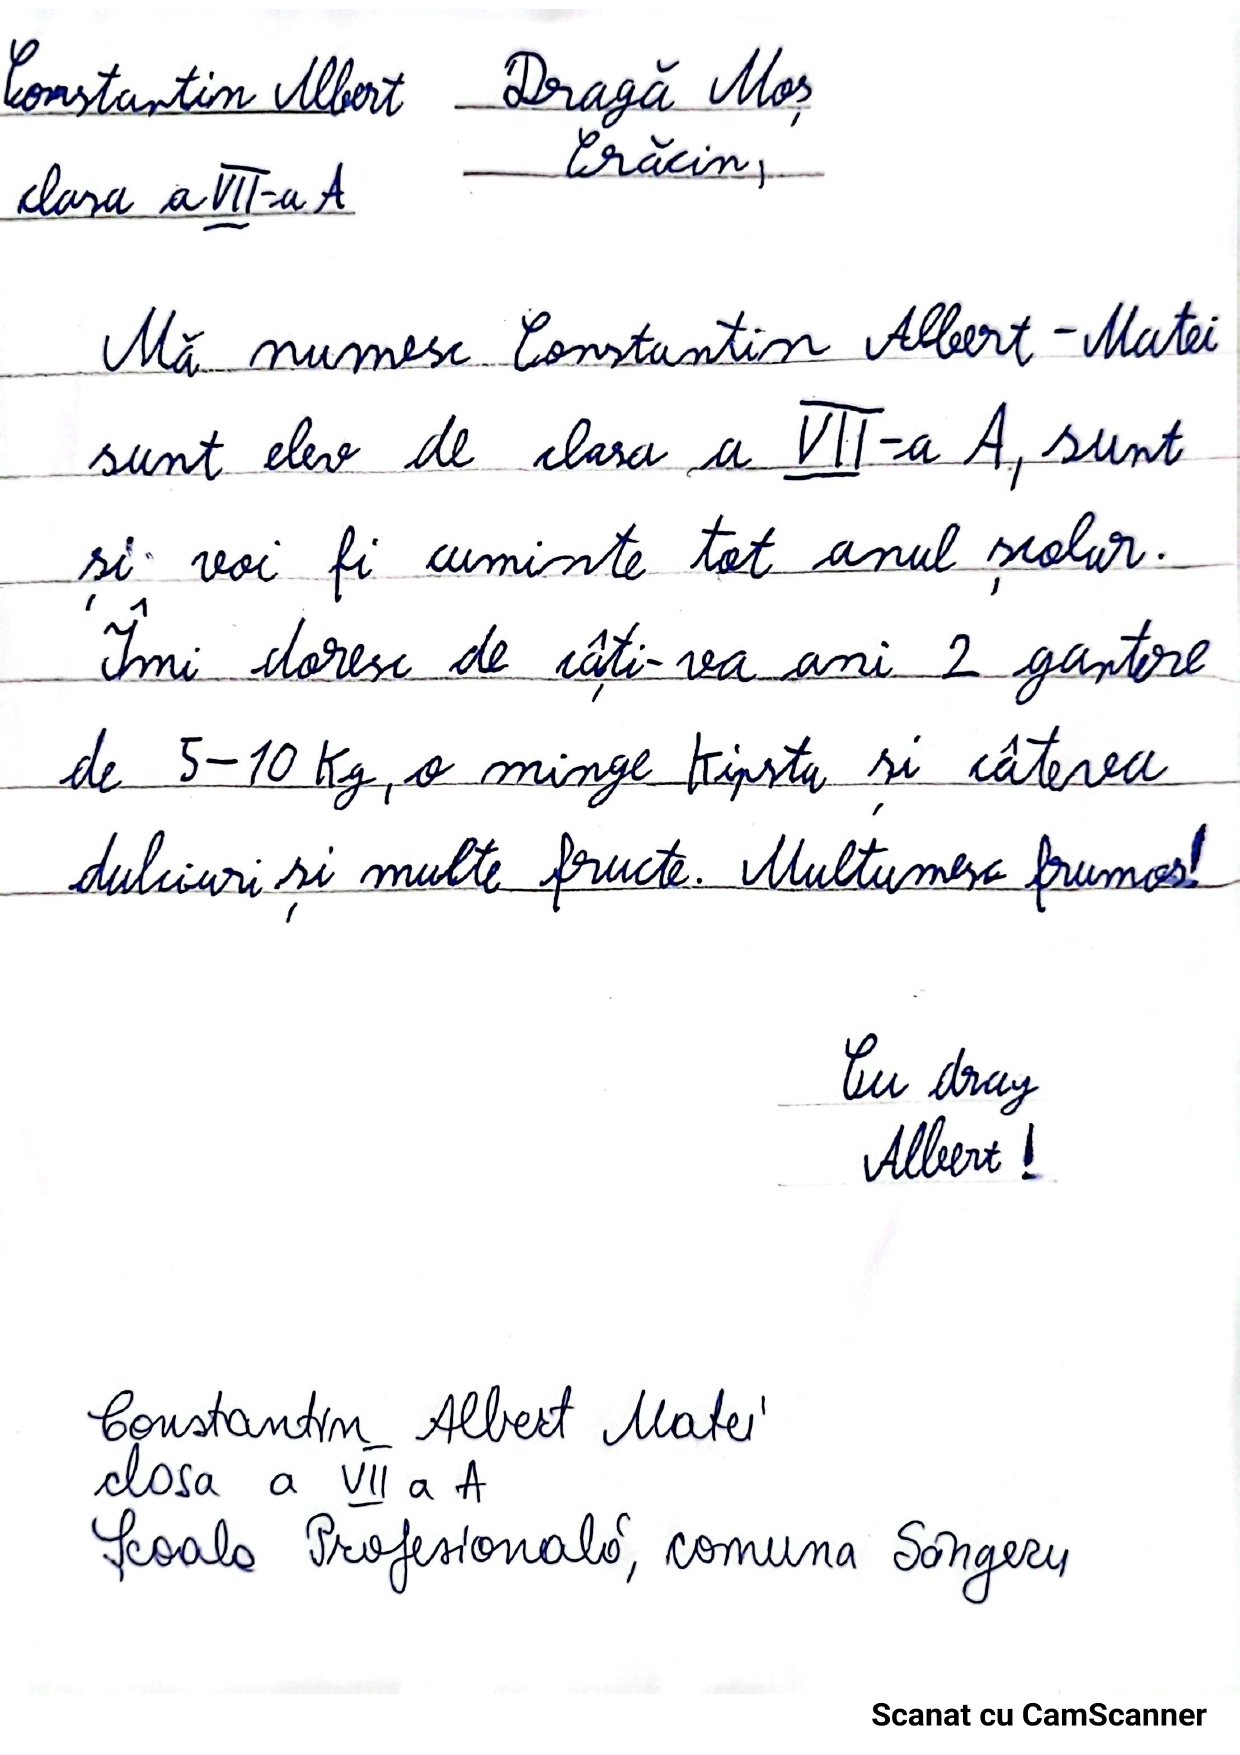 Constantin Albert
clasa a VII-a A
Dragă Moș
Crăcin,
Mă numesc Constantin Albert-Matei
sunt elev de clasa a VII-a A, sunt
și voi fi cuminte tot anul școlar.
Îmi doresc de câți-va ani 2 gantere
de 5-10 Kg, o minge Kipsta și câteva
dulciuri și multe fructe. Multumesc frumos!
Cu drag
Albert!
Constantin Albert Matei
clasa a VII a A
Școala Profesională, comuna Sângeru
Scanat cu CamScanner